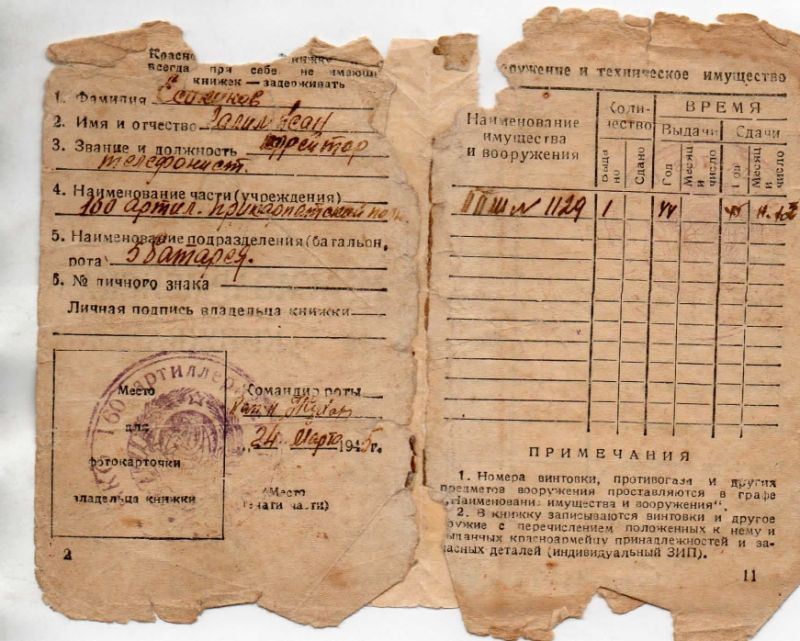 всегда при себе не имеющ
книжек—задерживать
1. Фамилия
2. Имя и отчество
3. Звание и должность ефрейтор
телефонист.
4. Наименование части (учреждения)
160 артил.
5. Наименование подразделения (батальон,
рота) 5 батарея.
6. № личного знака
Личная подпись владельца книжки
Место
для
фотокарточки
владельца книжки
160 артиллери
Командир роты
„24 марта 1945г.
(Место
печати части)
2
оружение и техническое имущество
Наименование
имущества
и вооружения
Коли-
чество
Выда
но
Сдано
ВРЕМЯ
Выдачи
Сдачи
Год
Месяц
и
число
Год
Месяц
и
число
ППШ № 1129 1 44
ПРИМЕЧАНИЯ
1. Номера винтовки, противогаза и других
предметов вооружения проставляются в графе
„Наименование имущества и вооружения“.
2. В книжку записываются винтовки и другое
оружие с перечислением положенных к нему и
выданных красноармейцу принадлежностей и за-
пасных деталей (индивидуальный ЗИП).
11